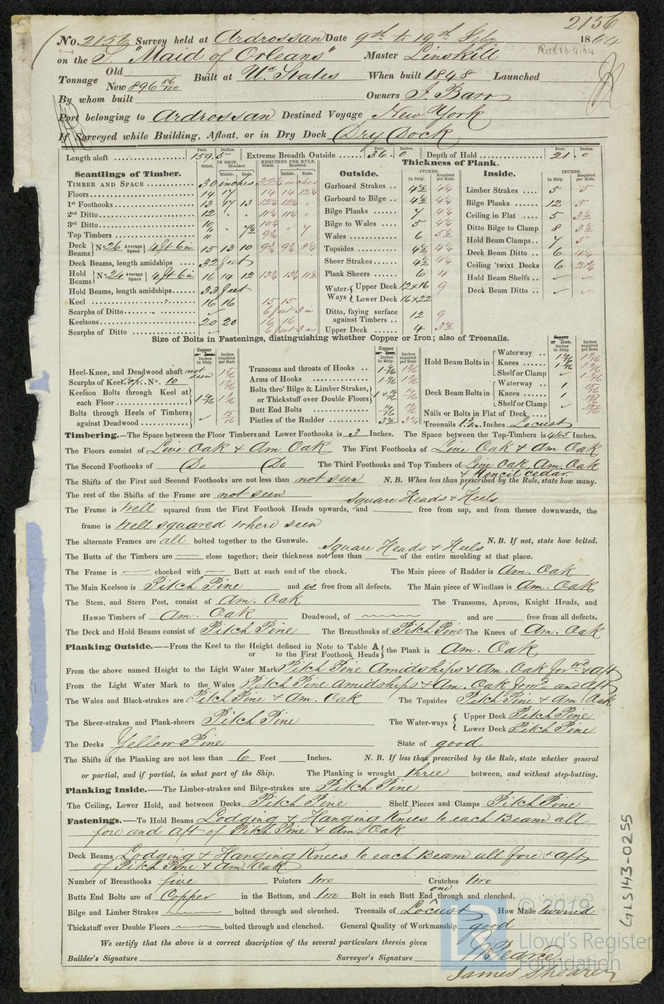 2156
No. 2156 Survey held at Ardrossan Date 9th to 19th Septr 1864
on the S "Maid of Orleans" Master Linskill
Tonnage Old New 896 Built at Ud. States When built 1848 Launched
By whom built Owners J. Barr
Port belonging to Ardrossan Destined Voyage New York
If Surveyed while Building, Afloat, or in Dry Dock Dry Dock
Length aloft 159.5 Extreme Breadth Outside 36.0 Depth of Hold 21.0
Scantlings of Timber. Thickness of Plank.
Outside. Inside.
TIMBER AND SPACE 30 inches
Floors 14 17
1st Foothooks 13
2nd Ditto 12
3rd Ditto
Top Timbers
Deck Beams No. 26 Average Space 4ft 6in 15 13 10
Deck Beams, length amidships 32 feet
Hold Beams No. 24 Average Space 4ft 6in 16 14 12
Hold Beams, length amidships 33 feet
Keel 16 16 15 15
Scarphs of Ditto
Keelsons 20 20 16 16
Scarphs of Ditto
Garboard Strakes
Garboard to Bilge
Bilge Planks
Bilge to Wales
Wales
Topsides
Sheer Strakes
Plank Sheers
Water-Ways Upper Deck 12 x 16 9
Lower Deck 16 x 22
Ditto, faying surface against Timbers 12 9
Upper Deck 4
Limber Strakes 5 5
Bilge Planks 12 5
Ceiling in Flat 5
Ditto Bilge to Clamp 8
Hold Beam Clamps 7 5
Deck Beam Ditto 6
Ceiling 'twixt Decks 6
Hold Beam Shelfs
Deck Beam Ditto
Size of Bolts in Fastenings, distinguishing whether Copper or Iron; also of Treenails.
Heel-Knee, and Deadwood abaft not seen
Scarphs of Keel No. 10
Keelson Bolts through Keel at each Floor
Bolts through Heels of Timbers against Deadwood
Transoms and throats of Hooks
Arms of Hooks
Bolts thro' Bilge & Limber Strakes, or Thickstuff over Double Floors
Butt End Bolts
Pintles of the Rudder
Hold Beam Bolts in Waterway
Knees
Shelf or Clamp
Deck Beam Bolts in Waterway
Knees
Shelf or Clamp
Nails or Bolts in Flat of Deck
Treenails Inches Locust
Timbering.—The Space between the Floor Timbers and Lower Foothooks is 3 Inches. The Space between the Top-Timbers is 4 to 5 Inches.
The Floors consist of Live Oak & Am. Oak The First Foothooks of Live Oak & Am Oak
The Second Foothooks of Do Do The Third Foothooks and Top Timbers of Live Oak, Am. Oak & Pencil Cedar
The Shifts of the First and Second Foothooks are not less than not seen N.B. When less than prescribed by the Rule, state how many.
The rest of the Shifts of the Frame are not seen
Square Heads & Heels
The Frame is well squared from the First Foothook Heads upwards, and free from sap, and from thence downwards, the
frame is Well squared where seen
The alternate Frames are all bolted together to the Gunwale. N.B. If not, state how bolted.
Square Heads & Heels
The Butts of the Timbers are close together; their thickness not less than of the entire moulding at that place.
The Frame is chocked with Butt at each end of the chock. The Main piece of Rudder is Am. Oak
The Main Keelson is Pitch Pine and is free from all defects. The Main piece of Windlass is Am. Oak
The Stem, and Stern Post, consist of Am. Oak The Transoms, Aprons, Knight Heads, and
Hawse Timbers of Am. Oak Deadwood, of and are free from all defects.
The Deck and Hold Beams consist of Pitch Pine The Breasthooks of Pitch Pine The Knees of Am. Oak
Planking Outside.—From the Keel to the Height defined in Note to Table A or to the First Foothook Heads the Plank is Am. Oak
From the above named Height to the Light Water Mark Pitch Pine Amidships & Am. Oak forwd & aft
From the Light Water Mark to the Wales Pitch Pine amidships & Am. Oak forwd and aft
The Wales and Black-strakes are Pitch Pine & Am. Oak The Topsides Pitch Pine & Am. Oak
The Sheer-strakes and Plank-sheers Pitch Pine The Water-ways Upper Deck Pitch Pine
Lower Deck Pitch Pine
The Decks Yellow Pine State of good
The Shifts of the Planking are not less than 6 Feet Inches. N.B. If less than prescribed by the Rule, state whether general
or partial, and if partial, in what part of the Ship. The Planking is wrought three between, and without step-butting.
Planking Inside.—The Limber-strakes and Bilge-strakes are Pitch Pine
The Ceiling, Lower Hold, and between Decks Pitch Pine Shelf Pieces and Clamps Pitch Pine
Fastenings.—To Hold Beams Lodging & Hanging Knees to each Beam all
fore and aft of Pitch Pine & Am Oak
Deck Beams Lodging & Hanging Knees to each Beam all fore & aft
of Pitch Pine & Am. Oak
Number of Breasthooks five Pointers two Crutches two
Butts End Bolts are of Copper in the Bottom, and two Bolt in each Butt End through and clenched. one
Bilge and Limber Strakes bolted through and clenched. Treenails of Locust How Made turned
Thickstuff over Double Floors bolted through and clenched. General Quality of Workmanship good
We certify that the above is a correct description of the several particulars therein given
Builder's Signature Surveyor's Signature Pearce
James Shearer
GLS143-0255
© 2019
Lloyd's Register
Foundation